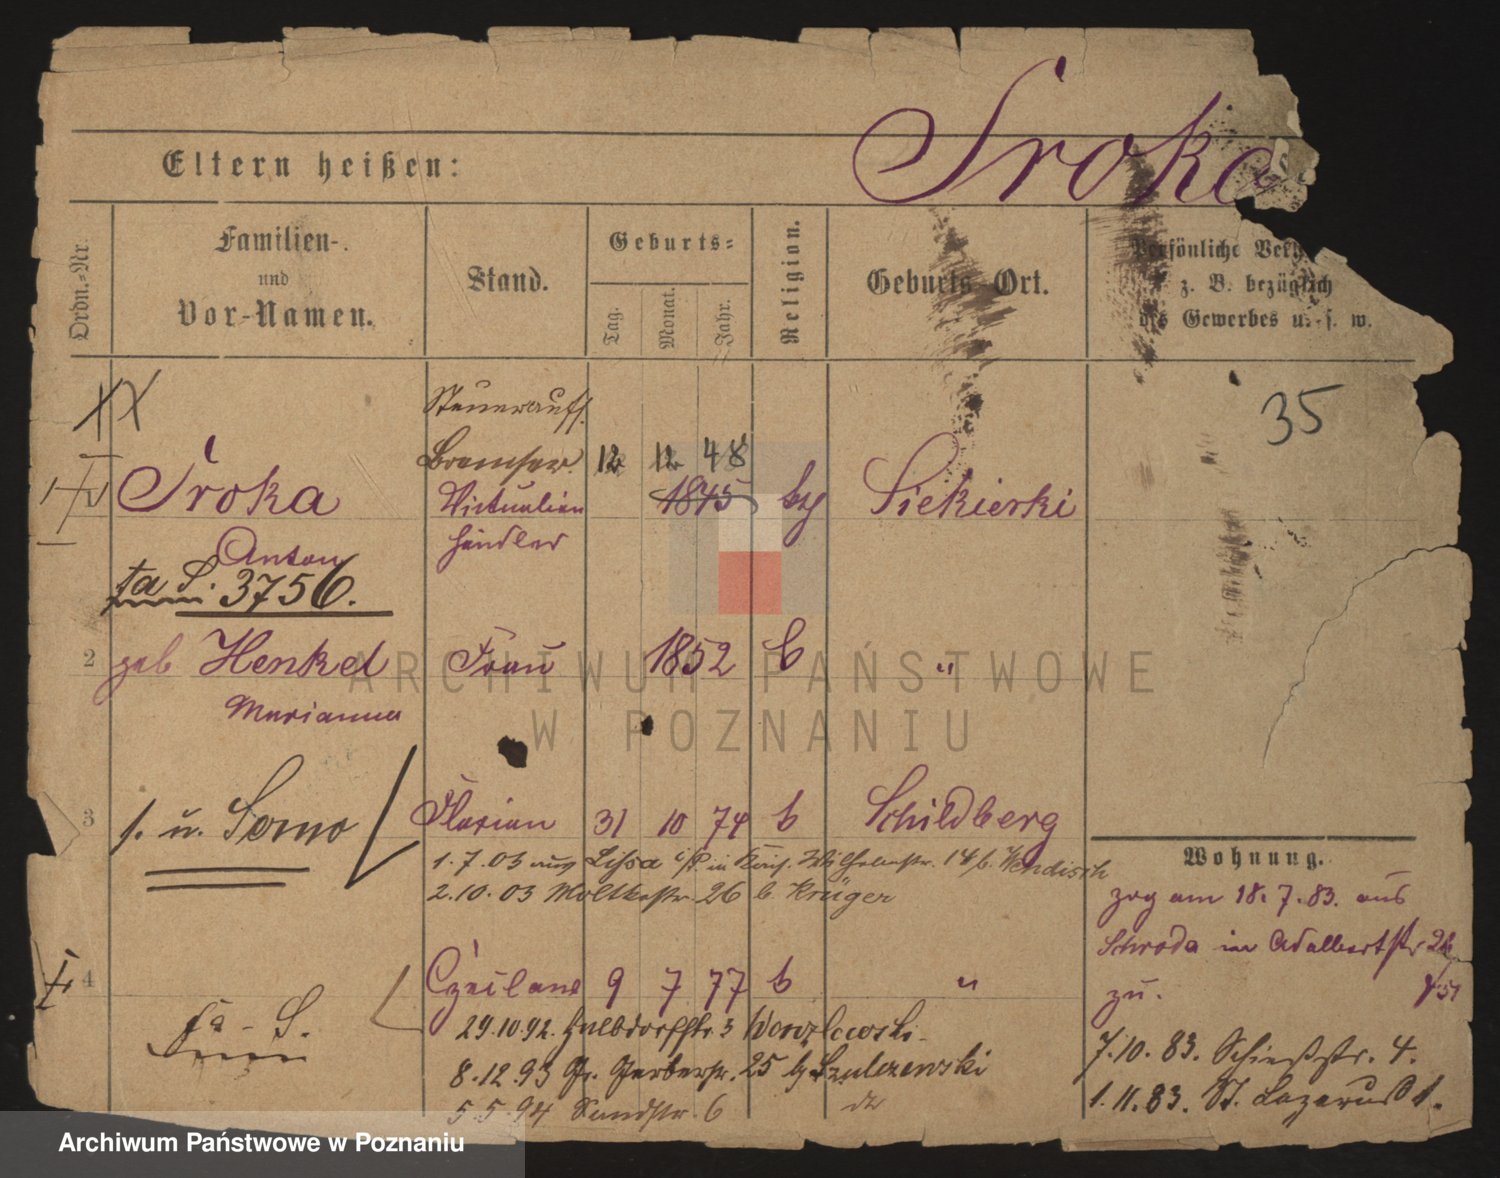 Sroka
Eltern heißen:
Ordn.-Nr.
Familien-
und
Vor-Namen.
Stand.
Geburts-
Tag.
Monat.
Jahr.
Religion.
Geburts-Ort.
Persönliche
z. B. bezüglich
des Gewerbes u. s. w.
35
Steuerauff.
12 12 48
Sroka Victualien 1845 Siekierki
händler
Anton
S. 3756.
2 geb Henkel Frau 1852 "
Marianna
3 s. u. Florian 31 10 74 Schildberg
1.7.03 aus Lissa i/P. in Wilhelmstr. 14 b. Wendisch
2.10.03 Moltkestr. 26 b. Krüger
Wohnung.
zog am 18.7.83. aus
Schroda in Adalbertstr
zu.
4 9 7 77 "
29.10.92. Halbdorfstr. 3
8.12.93 Gr. Gerberstr. 25 b Szulczewski
5.5.94 Sandstr. 6
7.10.83. Schießstr. 4.
1.11.83. St. Lazarus
ARCHIWUM PAŃSTWOWE
W POZNANIU
Archiwum Państwowe w Poznaniu